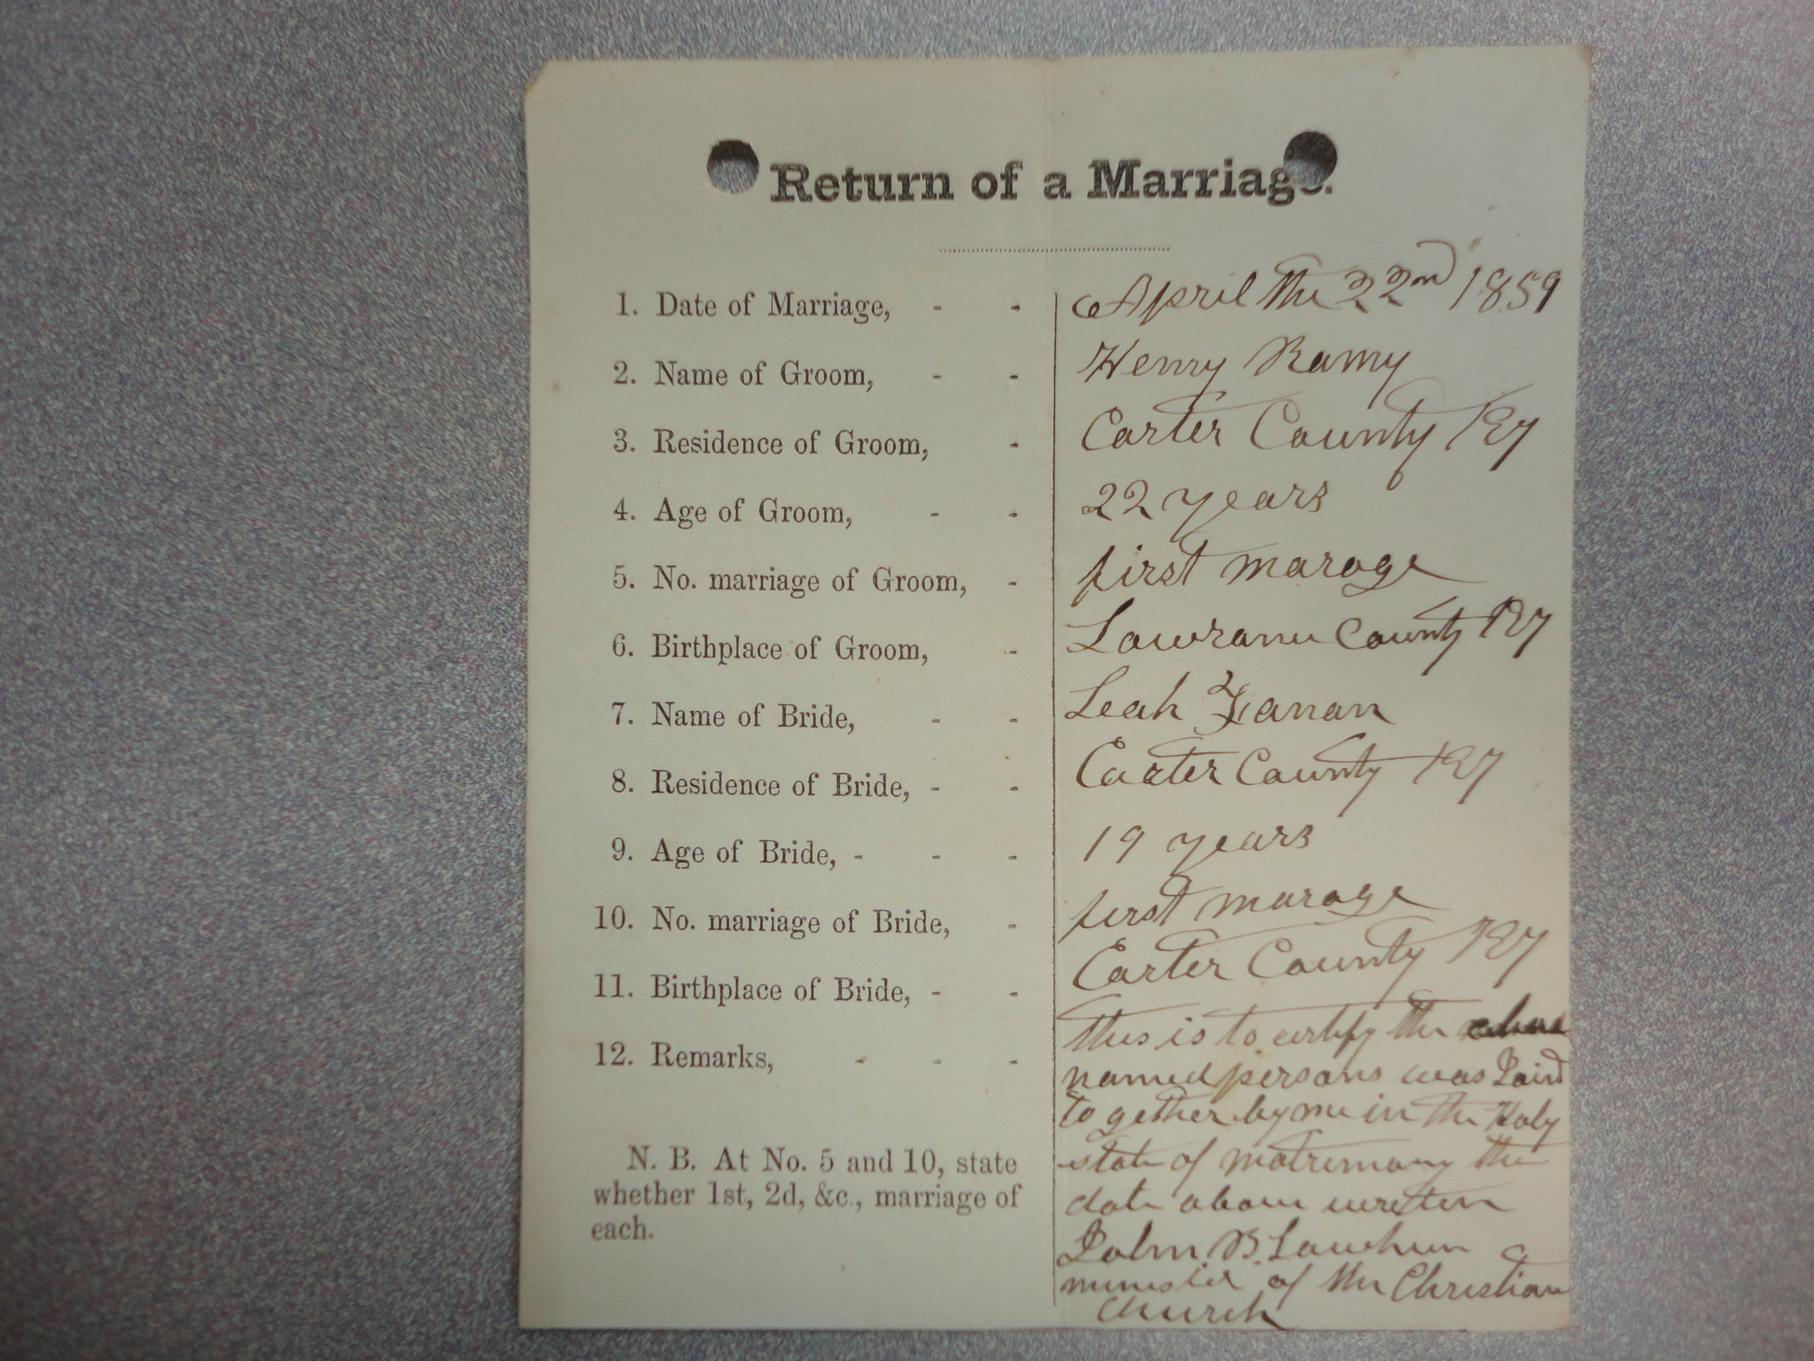 Return of a Marriage.
1. Date of Marriage, - - April the 22nd 1859
2. Name of Groom, - - Henry Ramy
3. Residence of Groom, - Carter County Ky
4. Age of Groom, - - 22 years
5. No. marriage of Groom, - first marage
6. Birthplace of Groom, - County Ky
7. Name of Bride, - - Leah
8. Residence of Bride, - - Carter County Ky
9. Age of Bride, - - - 19 years
10. No. marriage of Bride, - first marage
11. Birthplace of Bride, - - Carter County Ky
12. Remarks, - - - this is to certify the
named persons was Joind
to gether by me in the Holy
state of matrimony the
N. B. At No. 5 and 10, state
whether 1st, 2d, &c., marriage of
each.
date above written
John B.
minister of the Christian
Church